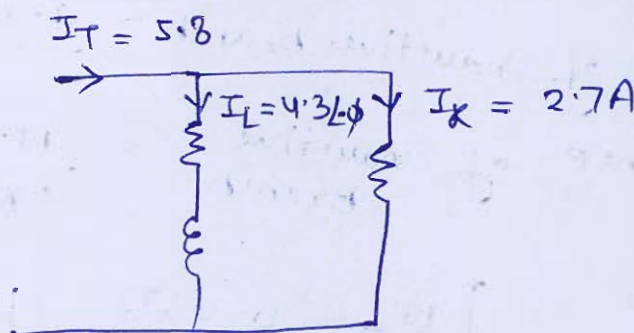 I_T = 5.8
I_L = 4.3∠-ϕ
I_R = 2.7A